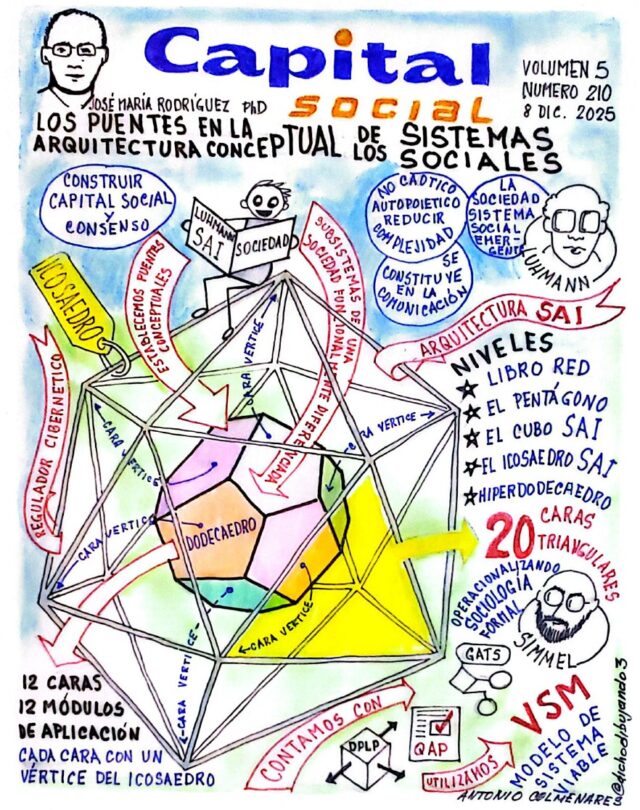 Capital
social
VOLUMEN 5
NUMERO 210
8 DIC. 2025
JOSÉ MARÍA RODRÍGUEZ PhD
LOS PUENTES EN LA
ARQUITECTURA CONCEPTUAL DE LOS SISTEMAS SOCIALES
CONSTRUIR
CAPITAL SOCIAL
Y
CONSENSO
LUHMANN
SAI
SOCIEDAD
NO CAÓTICO
AUTOPOIÉTICO
REDUCIR
COMPLEJIDAD
LA
SOCIEDAD
SISTEMA
SOCIAL
EMER-
GENTE
LUHMANN
SE
CONSTITUYE
EN LA
COMUNICACIÓN
ICOSAEDRO
ESTABLECEMOS PUENTES
CONCEPTUALES
SUBSISTEMAS DE UNA
SOCIEDAD FUNCIONALMENTE DIFERENCIADA
ARQUITECTURA SAI
NIVELES
LIBRO RED
EL PENTÁGONO
EL CUBO SAI
EL ICOSAEDRO SAI
HIPERDODECAEDRO
REGULADOR CIBERNÉTICO
CARA VERTICE
CARA VERTICE
CARA VERTICE
CARA VERTICE
CARA VERTICE
CARA VERTICE
CARA VERTICE
CARA VERTICE
DODECAEDRO
20 CARAS
TRIANGULARES
OPERACIONALIZANDO
SOCIOLOGÍA
FORMAL
SIMMEL
GATS
12 CARAS
12 MÓDULOS
DE APLICACIÓN
CADA CARA CON UN
VÉRTICE DEL ICOSAEDRO
CONTAMOS CON
DPLP
QAP
UTILIZAMOS
VSM
MODELO DE
SISTEMA
VIABLE
ANTONIO COLMENARES
@dichoodibujando3